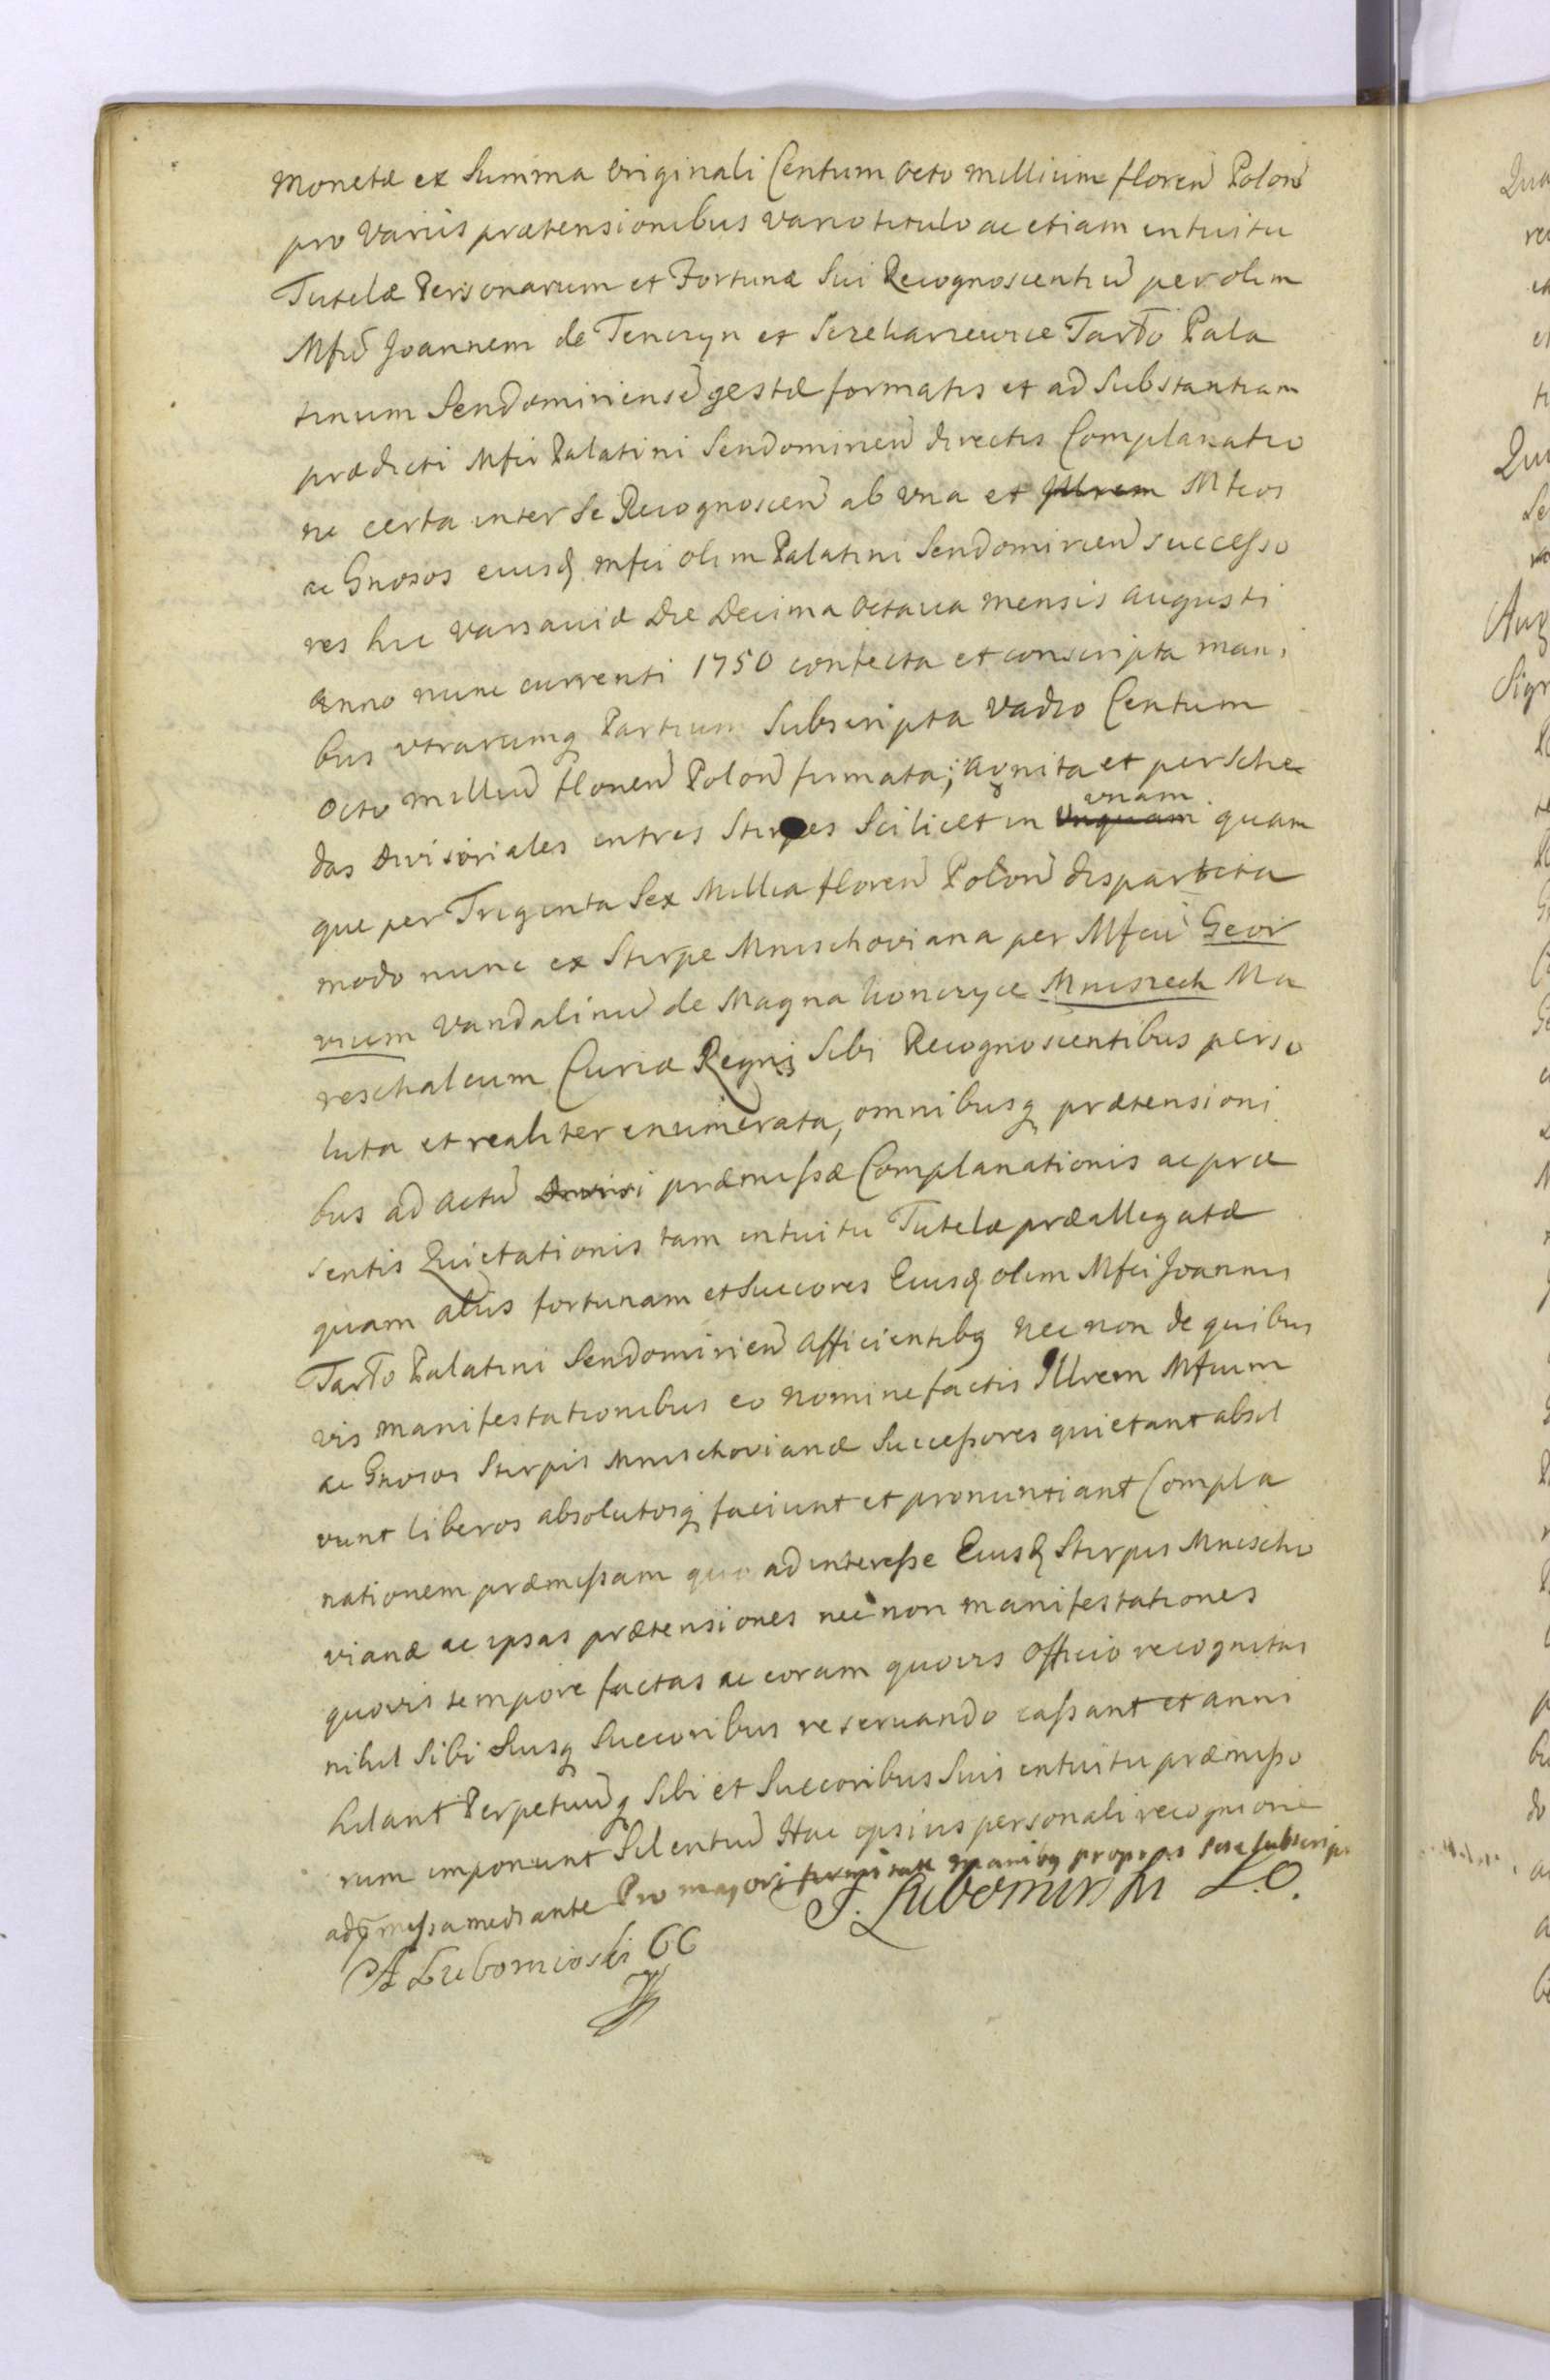 Monetæ ex Summa Originali Centum Octo Millium floren Polon
pro Variis prætensionibus vario titulo ac etiam intuitu
Tutelæ Personarum et Fortunæ Sui Recognoscentiu per olim
Mfcu Joannem de Tenczyn et Szekarzewice Tarło Pala
tinum Sendomiriense gestæ formatis et ad Substantiam
prædicti Mfci Palatini Sendomirien directis Complanatio
ne certa inter Se Recognoscen ab una et Illrem Mfcos
ac Gnosos eiusq Mfci olim Palatini Sendomirien successo
res hic Varsaviæ Die Decima Octava mensis Augusti
Anno nunc currenti 1750 confecta et conscripta mani
bus utrarumq Partium Subscripta Vadio Centum
Octo milliu floren Polon firmata; agnita et per Sche
das Divisoriales in tres Stirpes Scilicet in unquam unam quam
que per Triginta Sex Millia floren Polon dispartita
modo nunc ex Stirpe Mnischoviana per Mfcu Geor
gium Vandalinu de Magna Konczyce Mniszech Ma
reschalcum Curiæ Regni Sibi Recognoscentibus perso
luta et realiter enumerata, omnibusq prætensioni
bus ad actu præmissæ Complanationis ac præ
sentis Quietationis tam intuitu Tutelæ præallegatæ
quam aliis fortunam et Succores Eiusq olim Mfci Joannis
Tarło Palatini Sendomirien afficientibq nec non de quibus
vis manifestationibus eo nomine factis Illrem Mfcum
ac Gnosos Stirpis Mnischovianæ Successores quietant absol
vunt liberos absolutosq faciunt et pronuntiant Compla
nationem præmissam quo ad interesse Eiusq Stirpis Mnischo
vianæ ac ipsas prætensiones nec non manifestationes
quovis tempore factas ac coram quovis Officio recognitas
nihil Sibi Suisq Succoribus reservando cassant et anni
hilant Perpetuuq Sibi et Succoribus Suis intuitu præmisso
rum imponunt Silentiu Hac ipsius personali recognione
adq missa mediante Pro majori firmitate manibq propriis sese subscrip
J. Lubomirski L.O.
A Lubomirski CC